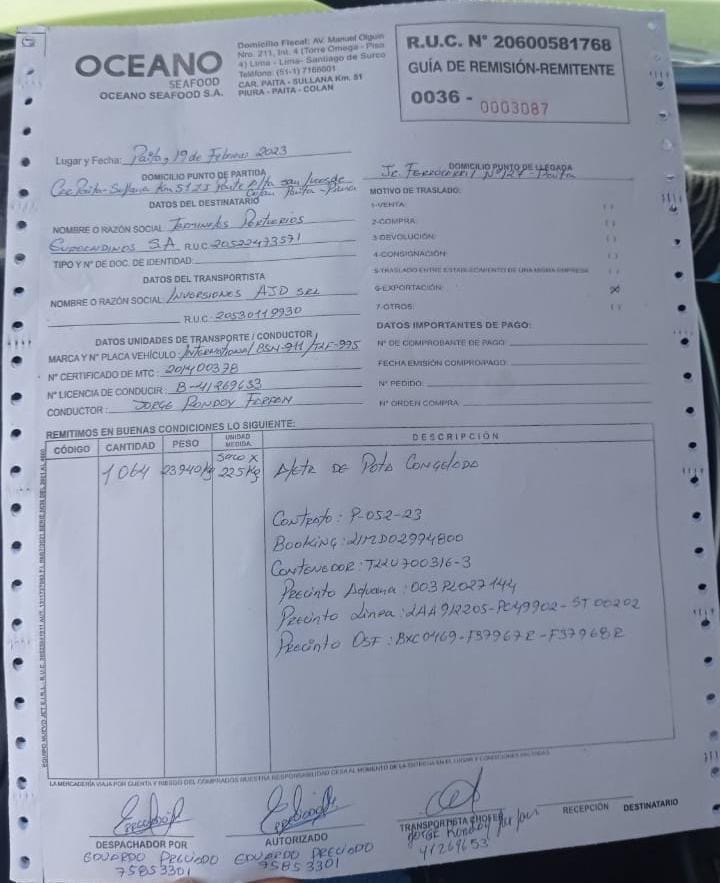 OCEANO
SEAFOOD
OCEANO SEAFOOD S.A.
Domicilio Fiscal: AV. Manuel Olguin
Nro. 211, Int. 4 (Torre Omega - Piso
4) Lima - Lima- Santiago de Surco
Teléfono: (51-1) 7166001
CAR. PAITA - SULLANA Km. 51
PIURA - PAITA - COLAN
R.U.C. N° 20600581768
GUÍA DE REMISIÓN-REMITENTE
0036 - 0003087
Lugar y Fecha: Paita, 19 de Febrero 2023
DOMICILIO PUNTO DE PARTIDA
Car. Paita-Sullana Km 51 Paita - Piura
DOMICILIO PUNTO DE LLEGADA
Jr. Ferrocarril N° 127 - Paita
DATOS DEL DESTINATARIO
NOMBRE O RAZÓN SOCIAL: Terminales Portuarios
Euroandinos S.A R.U.C: 20522473571
TIPO Y N° DE DOC. DE IDENTIDAD:
DATOS DEL TRANSPORTISTA
NOMBRE O RAZÓN SOCIAL: Inversiones AJD SRL
R.U.C: 20530119930
DATOS UNIDADES DE TRANSPORTE / CONDUCTOR
MARCA Y N° PLACA VEHÍCULO: International/BSN-911/
N° CERTIFICADO DE MTC: 201400378
N° LICENCIA DE CONDUCIR: B-41269653
CONDUCTOR: JORGE RONDOY
MOTIVO DE TRASLADO:
1-VENTA: ( )
2-COMPRA: ( )
3-DEVOLUCIÓN: ( )
4-CONSIGNACIÓN: ( )
5-TRASLADO ENTRE ESTABLECIMIENTO DE UNA MISMA EMPRESA ( )
6-EXPORTACIÓN: (X)
7-OTROS: ( )
DATOS IMPORTANTES DE PAGO:
N° DE COMPROBANTE DE PAGO:
FECHA EMISIÓN COMPRO/PAGO:
N° PEDIDO:
N° ORDEN COMPRA:
REMITIMOS EN BUENAS CONDICIONES LO SIGUIENTE:
CÓDIGO CANTIDAD PESO UNIDAD MEDIDA DESCRIPCIÓN
1064 23940kg Saco x 22.5kg Aleta de Pota Congelada
Contrato: P-052-23
Booking: 
Contenedor: 700316-3
Precinto Aduana: 003PL027144
Precinto Linea: -ST00202
Precinto OSF: BXC0469-F37967R-F37968R
LA MERCADERÍA VIAJA POR CUENTA Y RIESGO DEL COMPRADOR NUESTRA RESPONSABILIDAD CESA AL MOMENTO DE LA ENTREGA EN EL LUGAR Y CONDICIONES PACTADAS
DESPACHADOR POR
EDUARDO PRECIADO
75853301
AUTORIZADO
EDUARDO PRECIADO
75853301
TRANSPORTISTA CHOFER
Jorge Rondoy
41269653
RECEPCIÓN DESTINATARIO